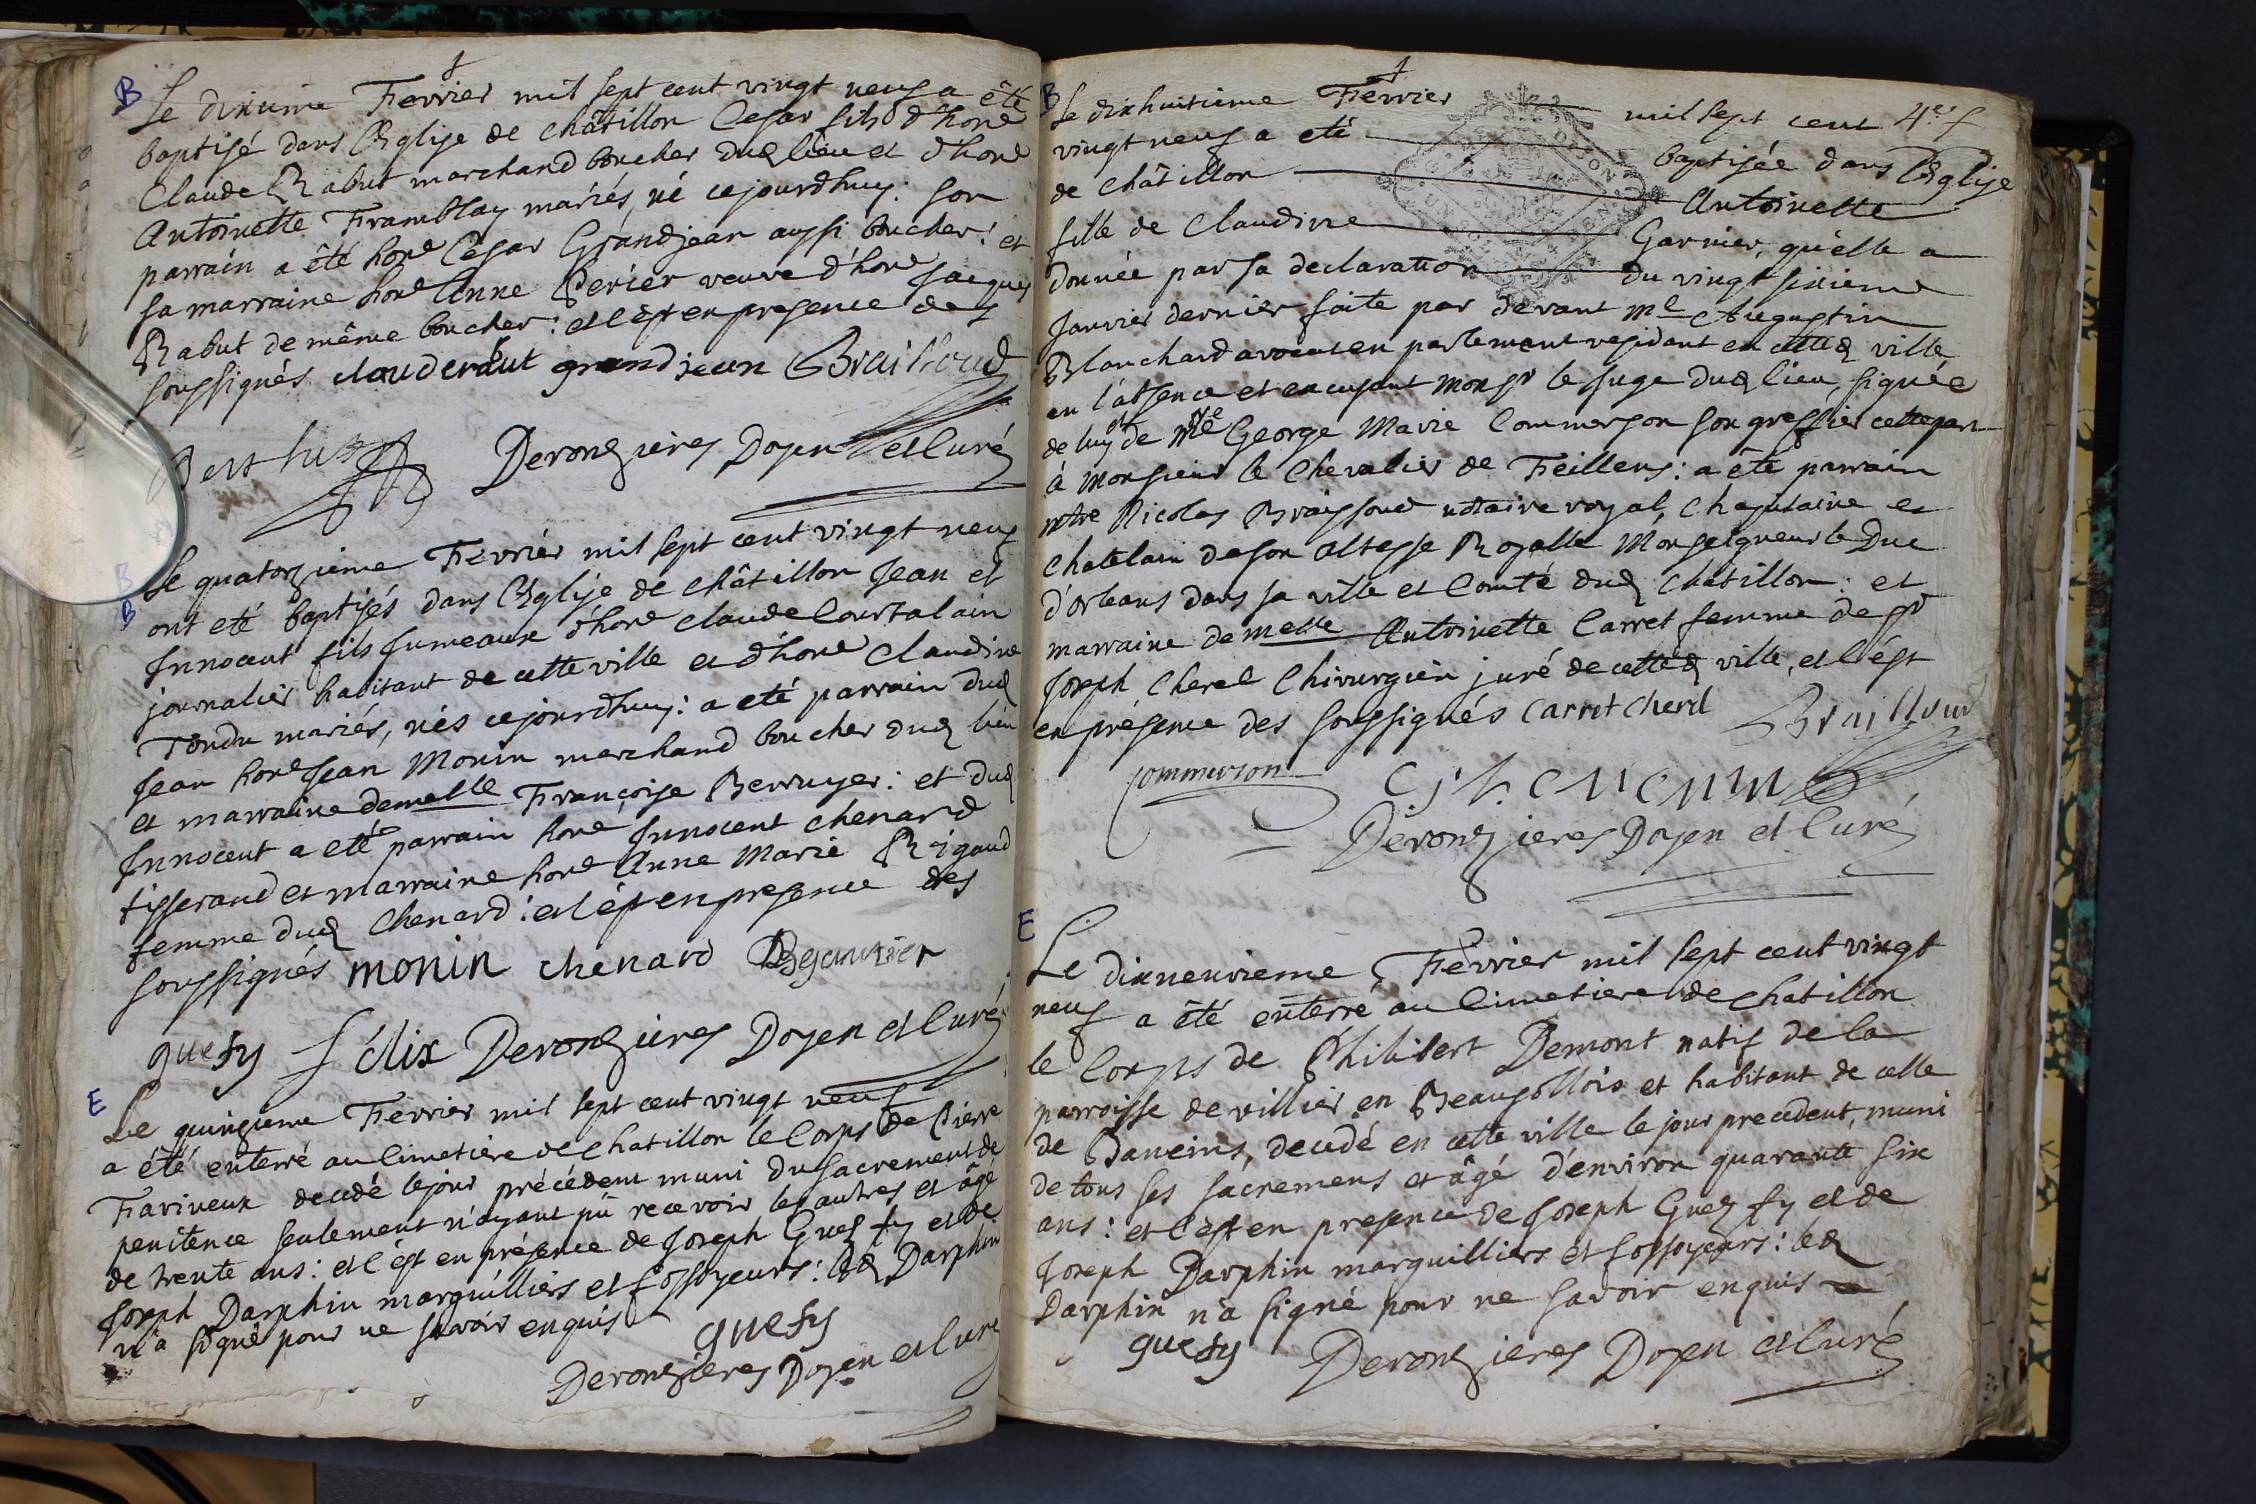 B
Le dixieme Fevrier mil sept cent vingt neuf a été
baptisé dans l'Eglise de châtillon Cesar fils d'hone
Claude Rabut marchand boucher dud lieu et d'hone
Antoinette Framblay mariés, né cejourdhuy: son
parrain a été hone César Grandjean aussi boucher: et
sa marraine hone Anne Perier veuve d'hone Jacques
Rabut de même boucher: et c'est en presence des
soussignés claude rabut grandjean Braissoud
Deronzieres Doyen et Curé
B
B
Le quatorzieme Fevrier mil sept cent vingt neuf
ont eté baptisés dans l'Eglise de châtillon Jean et
Innocent fils Jumeaux d'hone Claude Courtalain
journalier habitant de cette ville et d'hone Claudine
Tondu mariés, nés cejourdhuy: a eté parrain dud
Jean hone Jean Monin marchand boucher dud lieu
et marraine demelle Françoise Berruyer: et dud
Innocent a eté parrain hone Innocent chenard
tisserand et marraine hone Anne Marie Rigaud
femme dud Chenard: et c'est en presence des
soussignés monin chenard
guefy félix Deronzieres Doyen et Curé
E
Le quinzieme Fevrier mil sept cent vingt neuf
a été enterré au Cimetiere de chatillon le Corps de Pierre
Farineux decedé le jour précédent muni du sacrement de
penitence seulement n'ayant pû recevoir les autres et âgé
de trente ans: et c'est en présence de Joseph Guefy et de
Joseph Darphin marguilliers et fossoyeurs: led Darphin
n'a signé pour ne savoir enquis
guefy
Deronzieres Doyen et Curé
B
Le dixhuitieme Fevrier mil sept cent 4es f
vingt neuf a eté baptisée dans l'Eglise
de châtillon Antoinette
fille de Claudine Garnier, qu'elle a
donnée par sa declaration du vingt sixieme
Janvier dernier faite par devant Me Augustin
Blanchard avocat en parlement residant en cetted ville
en l'absence et excusant monsr le Juge dud lieu, signée
de luy et de Me George Marie Commerson son greffier cettepart
à monsieur le Chevalier de Feillens: a été parrain
mtre Nicolas Braissoud notaire royal, Chapulaine et
Chatelain de son Altesse Royalle Monseigneur le Duc
d'Orleans dans sa ville et Comté dud Chatillon: et
marraine demelle Antoinette Carret femme de sr
Joseph Cherel Chirurgien juré de cetted ville, et c'est
en présence des soussignés Carret cherel Braissoud
Commerson
Deronzieres Doyen et Curé
E
Le dixneuvieme Fevrier mil sept cent vingt
neuf a été enterré au Cimetiere de chatillon
le Corps de Philibert Demont natif de la
parroisse de villier en Beaujollois et habitant de celle
de Baneins, decedé en cette ville le jour precedent, muni
de tous ses sacremens et âgé d'environ quarante six
ans: et c'est en presence de Joseph Guefy et de
Joseph Darphin marguilliers et fossoyeurs: led
Darphin n'a signé pour ne savoir enquis
guefy Deronzieres Doyen et Curé